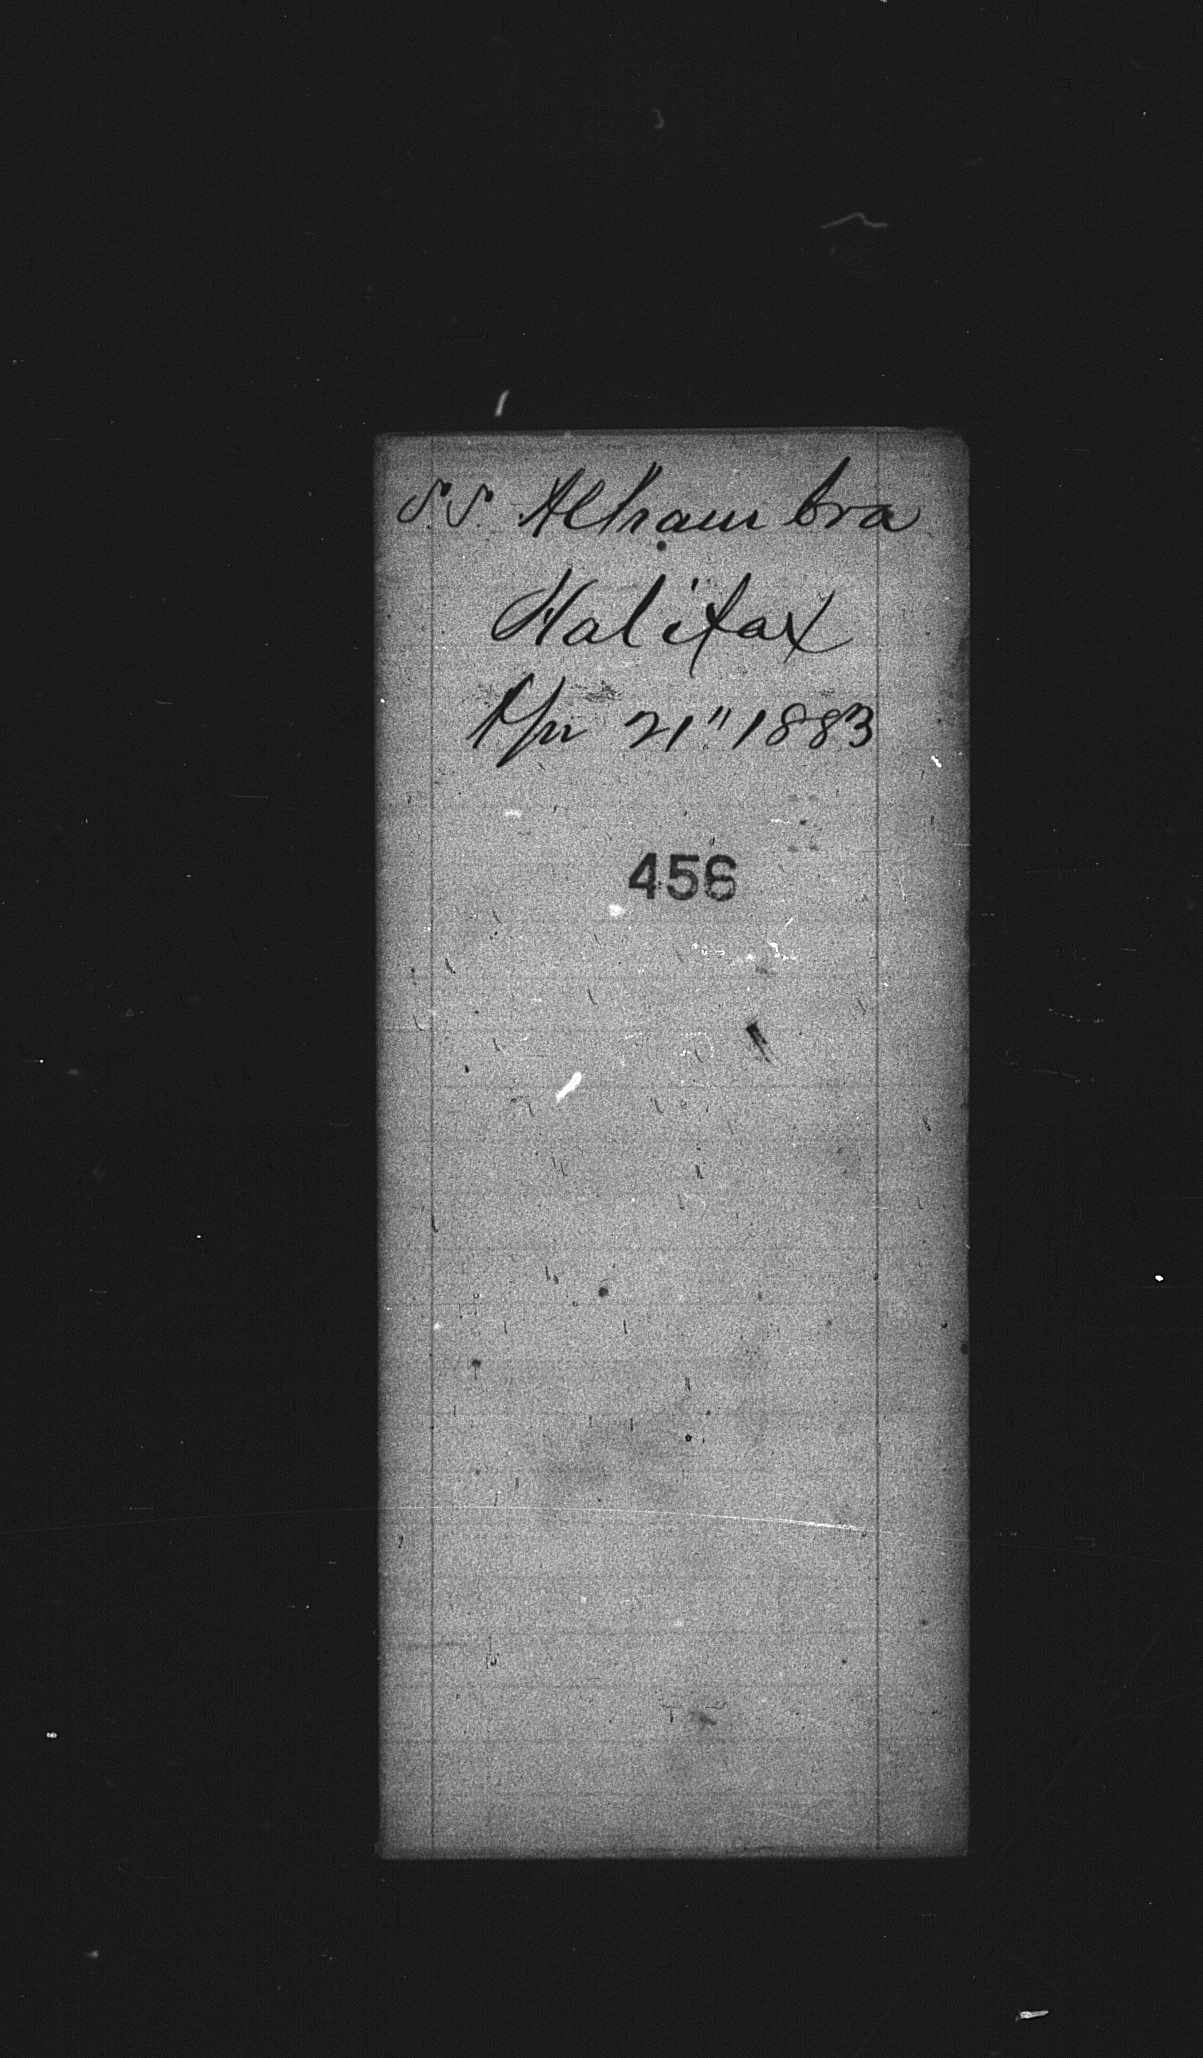 SS Alhambra
Halifax
Apr 21" 1883
456